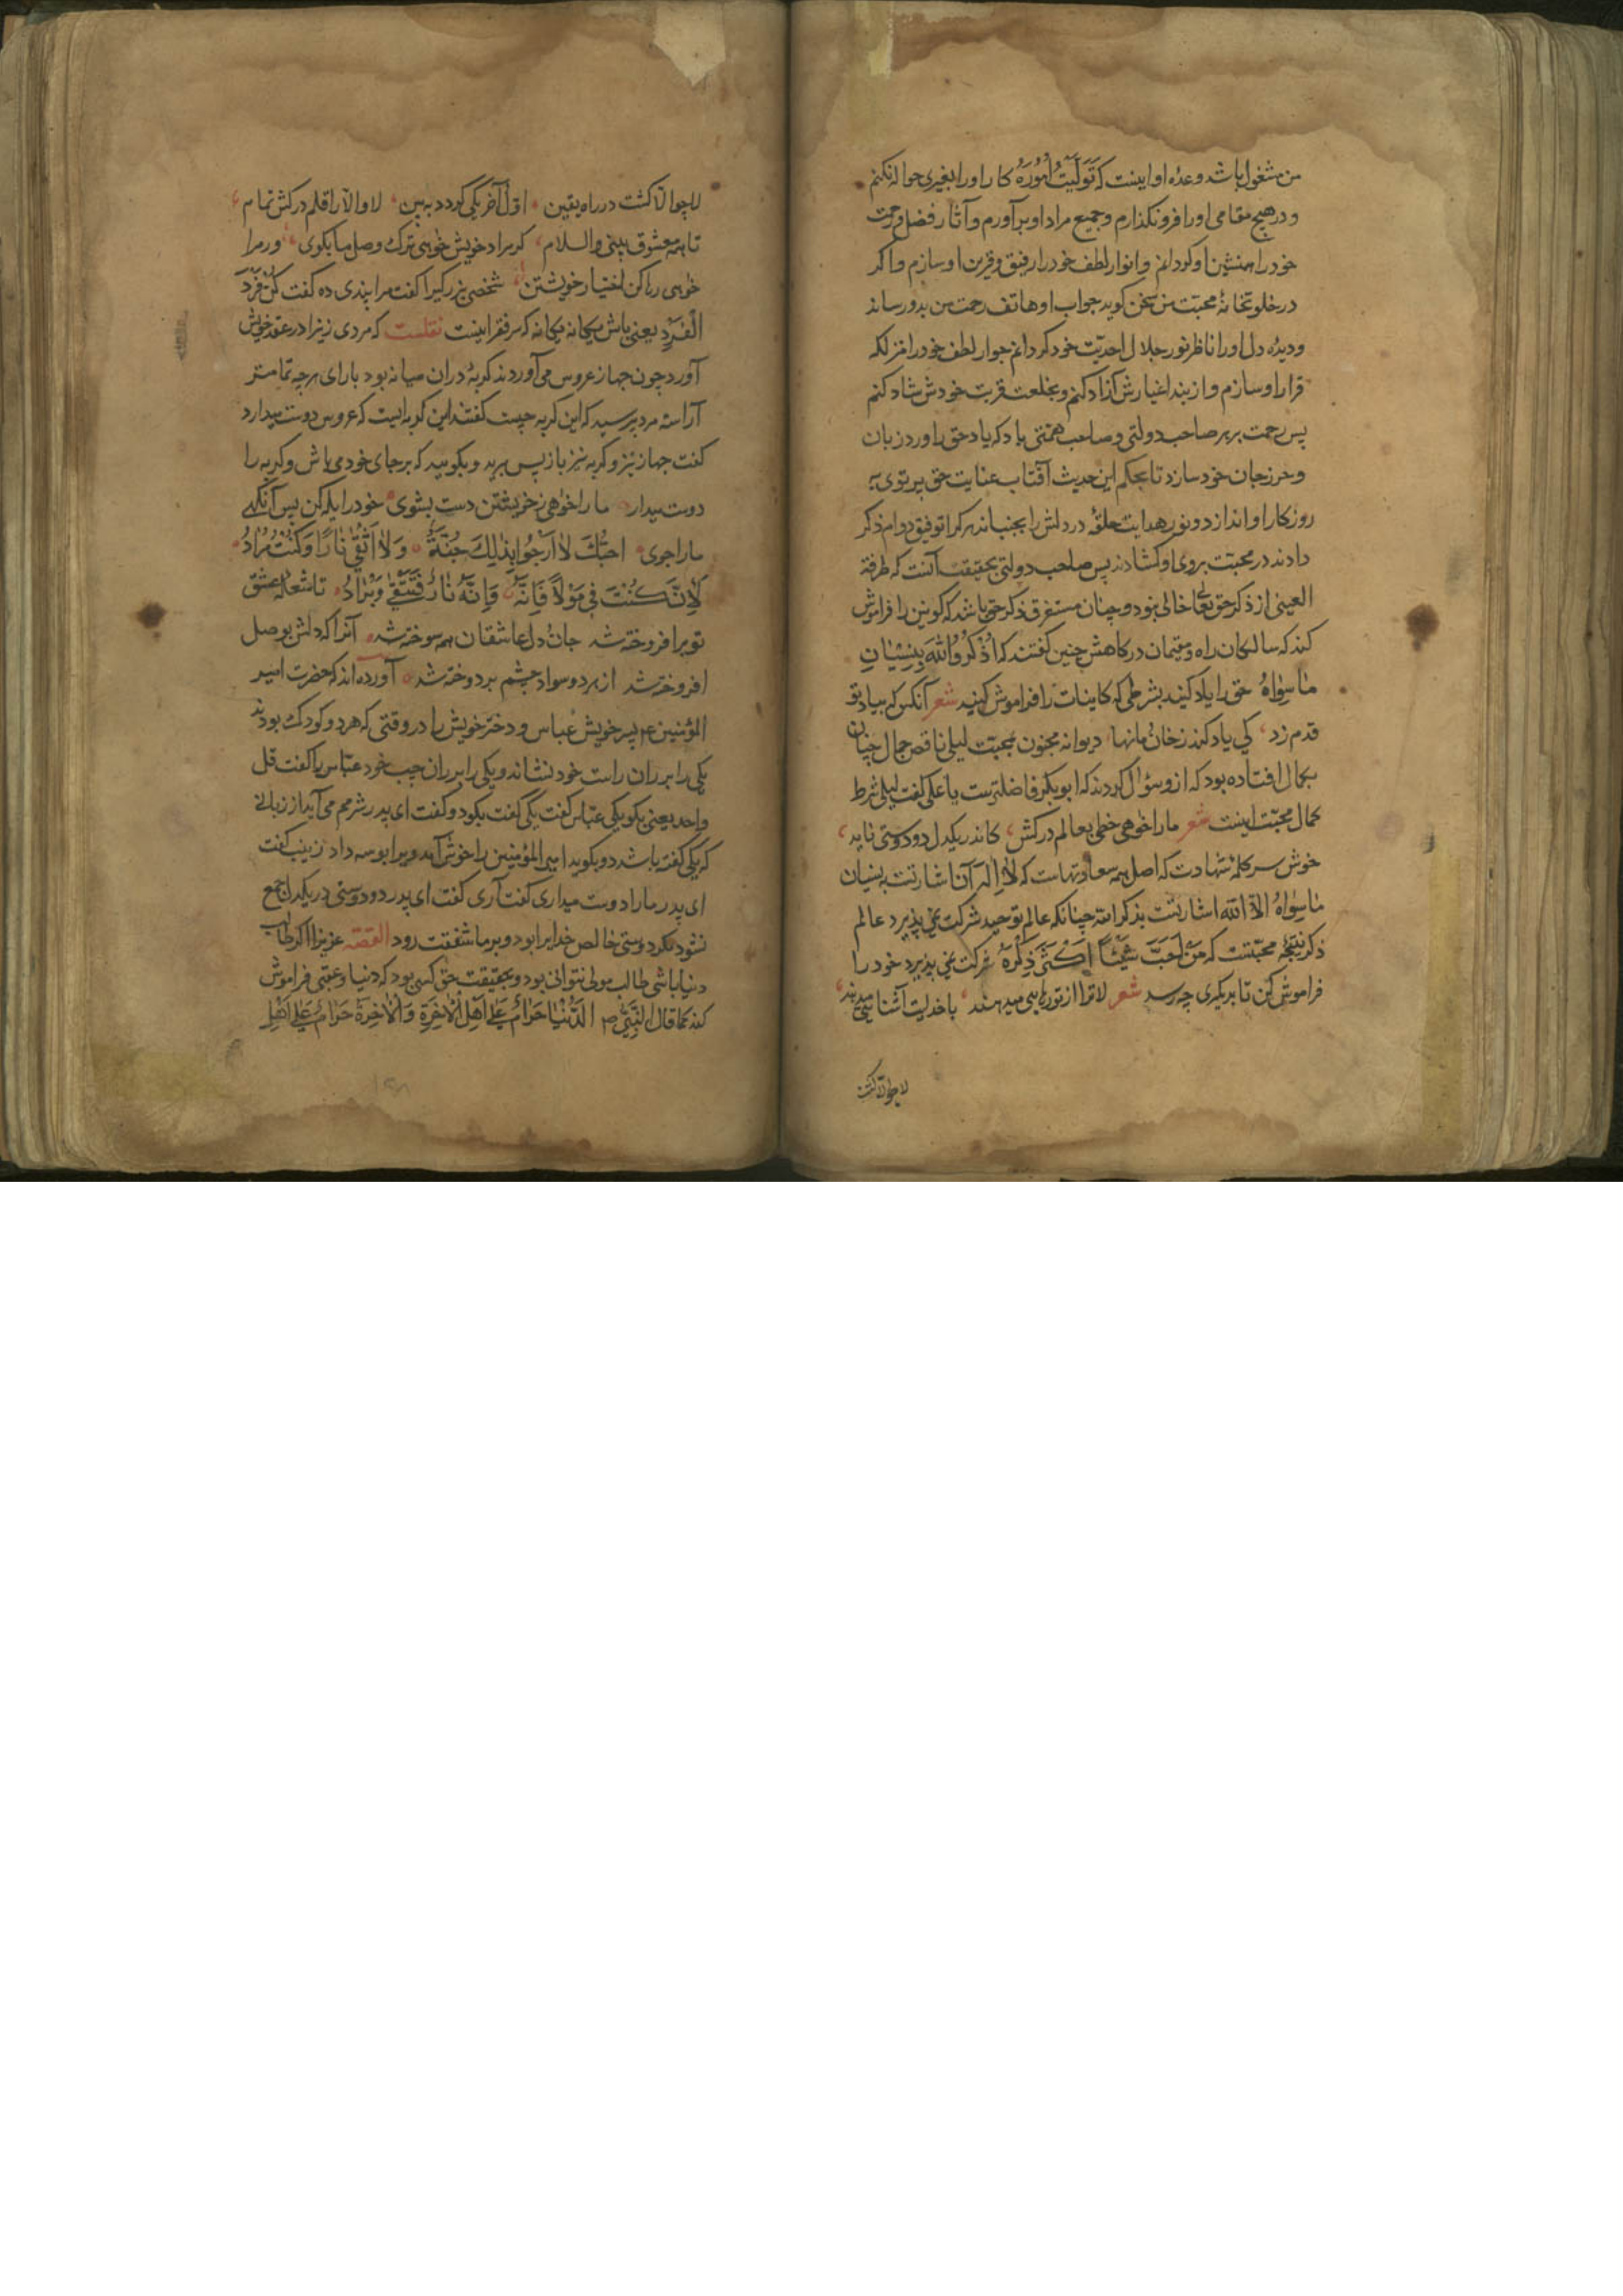 من مشغول باشد وعده او اینست که تَوَلَّیتُ اُمُورَهُ کار او را بغیری حواله نکنم
و در هیچ مقامی او را فرونگذارم و جمیع مراد او برآورم و آثار فضل و رحمت
خود را همنشین او گردانم و انوار لطف خود را رفیق و قرین او سازم و اگر
در خلوتخانهٔ محبت من سخن گوید جواب او هاتف رحمت من بدو رساند
و دیدهٔ دل او را ناظر نور جلال احدیّت خود گردانم جوار لطف خود را منزلکه
قرار او سازم و از بند اغیارش آزاد کنم و بخلعت قربت خودش شاد کنم
پس رحمت بر هر صاحب دولتی و صاحب همتی باد که یاد حق را ورد زبان
و حرز جان خود سازد تا بحکم این حدیث آفتاب عنایت حق پرتوی بر
روزکار او اندازد و نور هدایت حلقهٔ در دلش را بجنباند هر کرا توفیق دوام ذکر
دادند در محبت بروی او کشادند پس صاحب دولتی بحقیقت آنست که طرفة
العینی از ذکر حق تعالی خالی نبود و چنان مستغرق ذکر حق باشد که کونین را فراموش
کند که سالکان راه و مقیمان درکاهش چنین گفتند که اُذْکُرُوا اللهَ بِنِسْیٰانِ
مٰا سِوٰاهُ حق را یاد کنید بشرطی که کاینات را فراموش کنید شعر آنکس که بیاد تو
قدم زد، کی یاد کند ز خان و مانها، دیوانه مجنون بمحبّت لیلی ناقص جمال چنان
بکمال افتاده بود که از و سؤال کردند که ابوبکر فاضلترست یا علی گفت لیلی شرط
کمال محبّت اینست شعر ما را خواهی خطی بعالم درکش، کاندر یکدل دو دوستی ناید،
خوش سر کلمهٔ شهادت که اصل همه سعادتهاست که لا اِلٰهَ آن اشارتست به نسیان
مٰا سِوٰاهُ الّا الله اشارتست بذکر الله چنانکه عالم توحید شرکت نمی پذیرد عالم
ذکر نتیجهٔ محبّتست که مَنْ اَحَبَّ شَیْئًا اَکْثَرَ ذِکْرَهُ شرکت نمی پذیرد خود را
فراموش کن تا بدیکری چه رسد شعر لا ترا از تو رهایی میدهد، با خدایت آشنایی میدهد،
لا چو الّا کشت
لا چو الّا کشت در راه یقین، اوّل آخر یکی گردد به بین، لا و الّا را قلم درکش تمام،
تا همه معشوق بینی والسلام، کر مراد خویش خواهی ترک وصل ما بکوی، ور مرا
خواهی رها کن اختیار خویشتن، شخصی بزرگیرا گفت مرا پندی ده گفت کُنْ فَرْدَ
الْفَرْدِ یعنی باش یکانه یکانه که سر فقر اینست نقلست که مردی زنیرا در عقد خویش
آورد چون جهاز عروس می آوردند کربهٔ در ان میانه بود بارای هرچه تمامتر
آراسته مرد پرسید که این کربه چیست گفتند این کربه ایست که عروس دوست میدارد
گفت جهاز نیز و کربه نیز باز پس برید و بکویید که بر جای خود می باش و کربه را
دوست میدار، ما را خواهی ز خویشتن دست بشوی، خود را یله کن پس آنکهی
ما را جوی، احبّک لا اَرْجُوا بِذٰلِکَ جُنَّةً، وَلٰا اَتَّقی نٰارًا وَکُنْتُ مُرٰادُ،
تا شعلهٔ عشق
تو برافروخته شد جان و دل عاشقان همه سوخته شد، آنرا که دلش بوصل
افروخته شد از هر دو سواد چشم بردوخته شد، آورده اند که حضرت امیر
المؤمنین ع پسر خویش عباس و دختر خویش را در وقتی که هر دو کودک بودند
یکی را بر ران راست خود نشاند و یکی را بر ران چپ خود عبّاس را گفت قل
واحد یعنی بکو یکی عبّاس گفت یکی گفت بکو دو گفت ای پدر شرمم می آید از زبانی
که یکی گفته باشد دو بکوید امیر المؤمنین را خوش آمد ویرا بوسه داد زینب گفت
ای پدر ما را دوست میداری گفت آری گفت ای پدر دو دوستی در یکدل جمع
نشود مکر دوستی خالص خدایرا بود و بر ما شفقت رود القصّه عزیزا اکر طالب
دنیا باشی طالب مولی نتوانی بود و بحقیقت حق کسی بود که دنیا و عقبی فراموش
کند کما قال النّبیّ ص الدُّنْیٰا حَرٰامٌ عَلیٰ اَهْلِ الْاٰخِرَةِ وَالْاٰخِرَةُ حَرٰامٌ عَلیٰ اَهْلِ